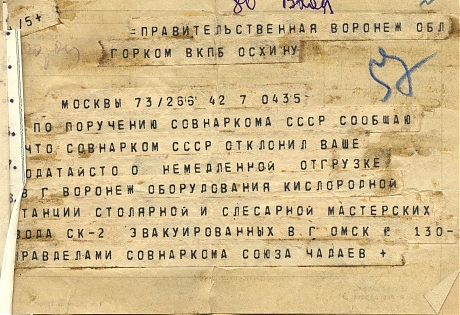 15+
=ПРАВИТЕЛЬСТВЕННАЯ ВОРОНЕЖ ОБЛ
ГОРКОМ ВКПБ ОСХИНУ
МОСКВЫ 73/266 42 7 0435
ПО ПОРУЧЕНИЮ СОВНАРКОМА СССР СООБЩАЮ
ЧТО СОВНАРКОМ СССР ОТКЛОНИЛ ВАШЕ
ОДАТАЙСТО О НЕМЕДЛЕННОЙ ОТГРУЗКЕ
В Г ВОРОНЕЖ ОБОРУДОВАНИЯ КИСЛОРОДНОЙ
ТАНЦИИ СТОЛЯРНОЙ И СЛЕСАРНОЙ МАСТЕРСКИХ
ВОДА СК-2 ЭВАКУИРОВАННЫХ В.Г ОМСК 130-
ПРАВДЕЛАМИ СОВНАРКОМА СОЮЗА ЧАДАЕВ +